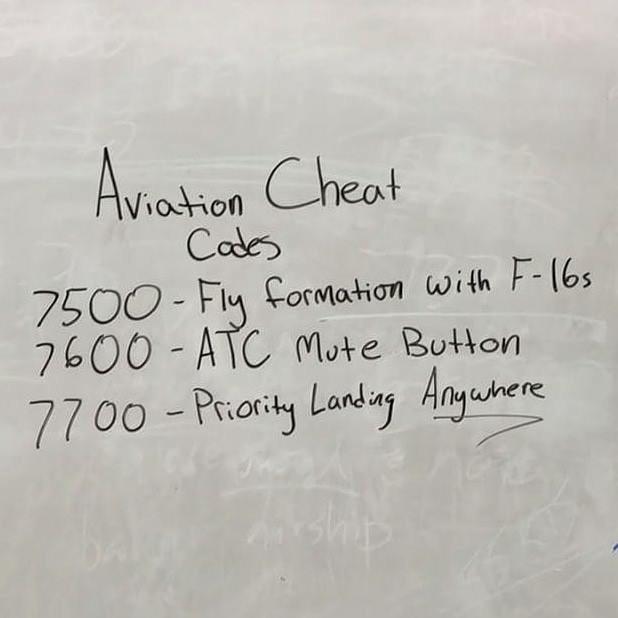 Aviation Cheat
Codes
7500 - Fly formation with F-16s
7600 - ATC Mute Button
7700 - Priority Landing Anywhere
airship